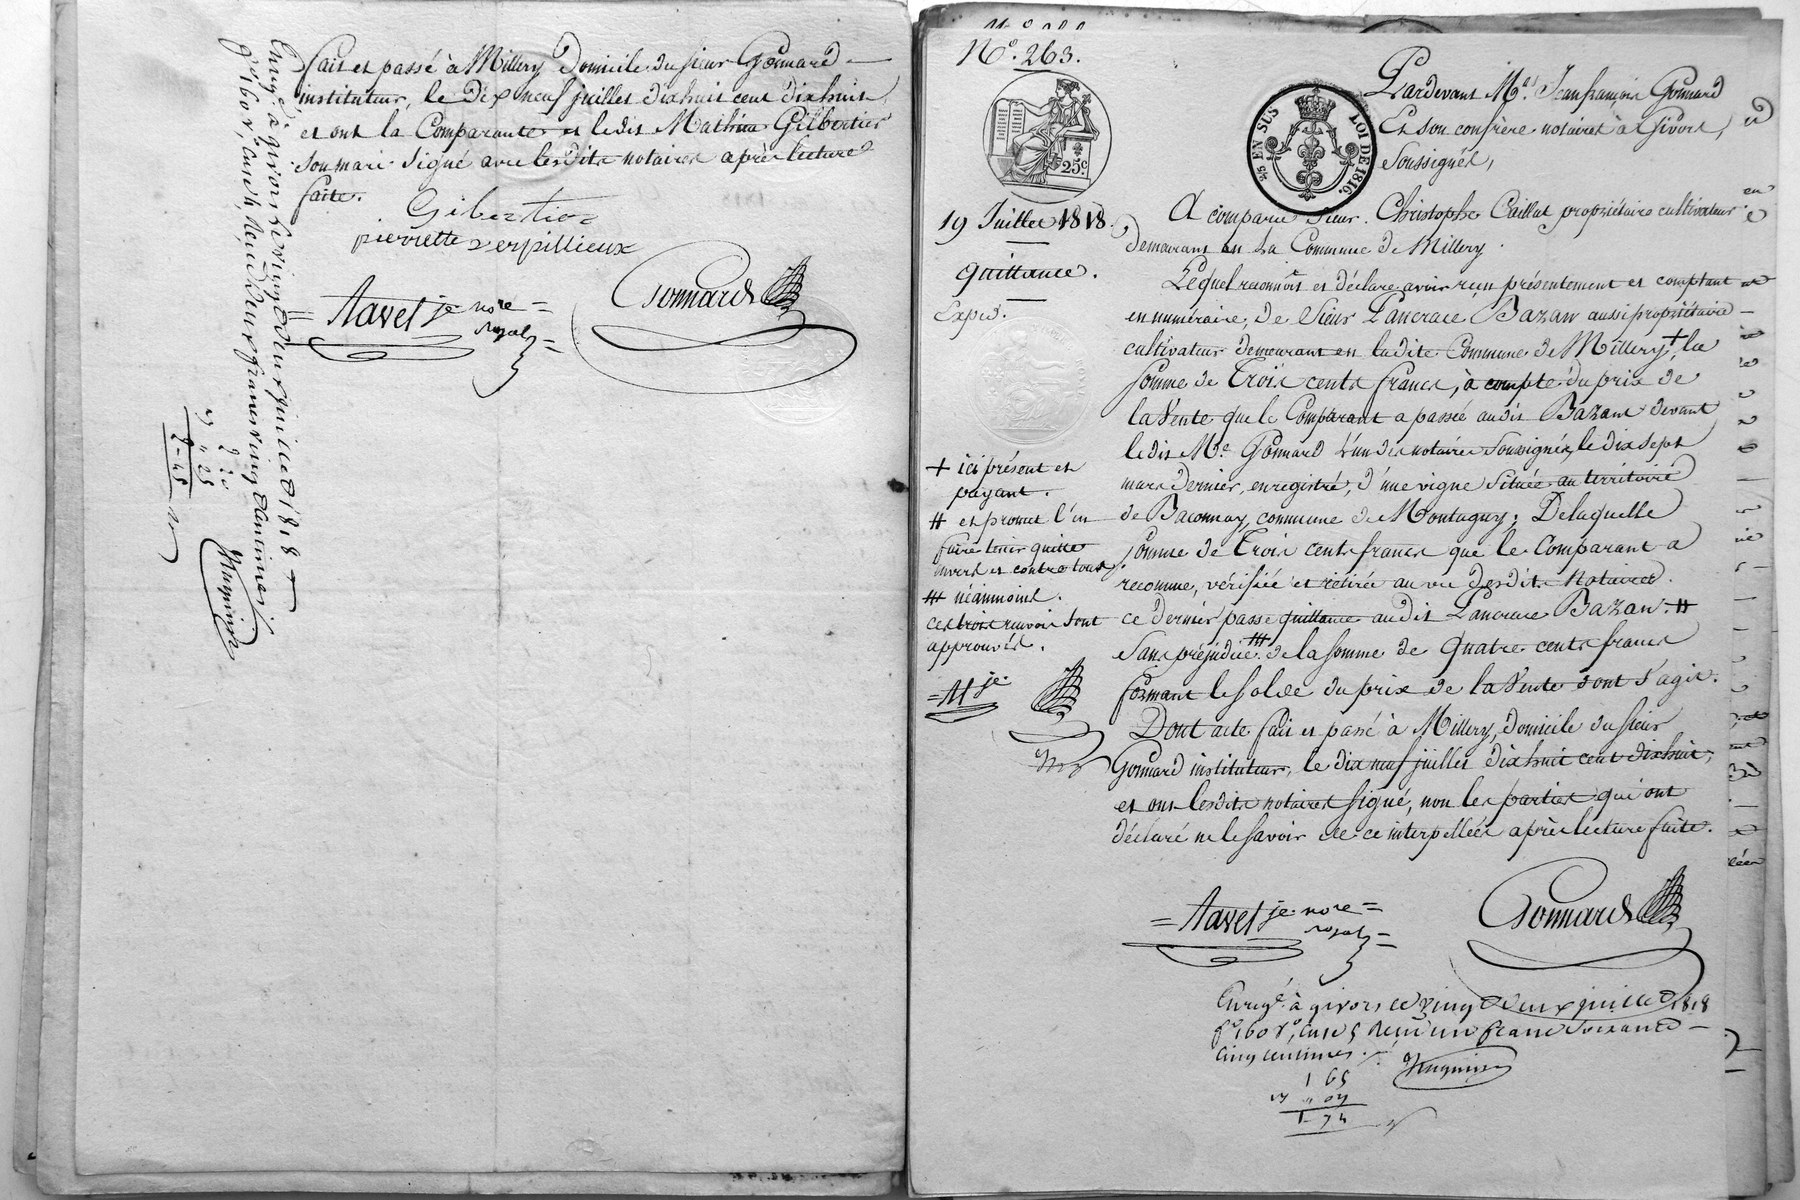 fait et passé à Millery Domicile du sieur Gonnard
instituteur, le Dix neuf juillet dixhuit cent dixhuit,
et ont la Comparante et ledit Mathieu Gilbertier
son mari signé avec lesdits notaires après lecture
faite.
Gibertier
pierrette verpillieux
= Navel je nore =
royal =
Gonnard
Enregé à givors le vingt deux juillet 1818
fo 160 vo, case 4, Reçu deux francs vingt centimes
2 20
" 25
2-45
No. 263.
25 c.
25 EN SUS
LOI DE 1816.
19 Juillet 1818.
quittance.
Expié.
Pardevant Me. Jean françois Gonnard
Et son confrère notaires à Givors,
Soussignés,
A comparu Sieur Christophe Caillat propriétaire cultivateur
demeurant en la Commune de Millery.
Lequel reconnoit et déclare avoir reçu présentement et comptant
en numéraire, de Sieur Pancrace Bazan aussi propriétaire
cultivateur demeurant en ladite Commune de Millery +, la
somme de Trois cents francs, à compte du prix de
la Vente que le Comparant a passée audit Bazan devant
ledit Me. Gonnard l'un des notaires Soussignés, le dix sept
mars dernier, enregistré, d'une vigne Située au territoire
de Baconnay, commune de Montagny; De laquelle
somme de Trois cents francs que le Comparant a
reconnue, vérifiée et retirée au vu desdits Notaires.
ce dernier passe quittance audit Pancrace Bazan. #
Sans préjudice de la somme de Quatre cents francs
formant le solde du prix de la Vente dont s'agit.
Dont acte fait et passé à Millery, domicile du sieur
Gonnard instituteur, le dix neuf juillet dixhuit cent dixhuit,
et ont lesdits notaires signé, non les parties qui ont
déclaré ne le savoir de ce interpellées après lecture faite.
+ ici présent et
payant.
# et promet l'en
faire tenir quitte
envers et contre tous
néanmoins.
ces trois renvois sont
approuvés.
= N je
= Navel je nore =
royal =
Gonnard
Enregé à givors le vingt deux juillet 1818
fo 160 vo, case 5, Reçu un franc soixante
cinq centimes.
1 65
" 09
1-74